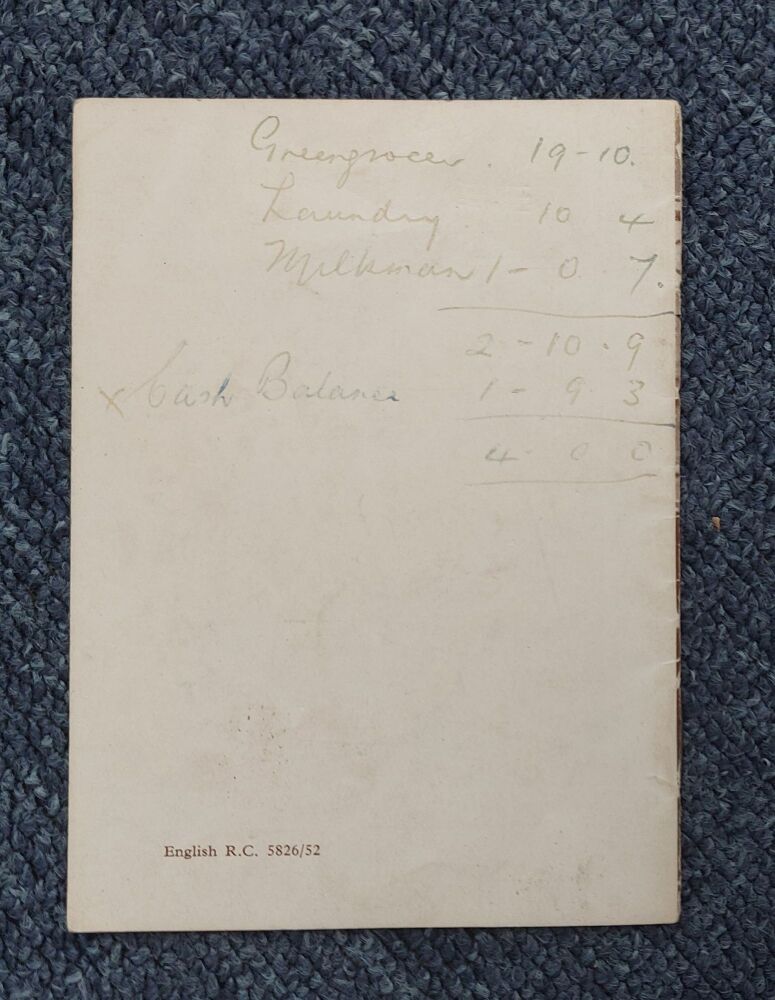 Greengrocer. 19-10.
Laundry 10 4
Milkman 1- 0 7.
2-10.9
x Cash Balance 1- 9 3
4 0 0
English R.C. 5826/52